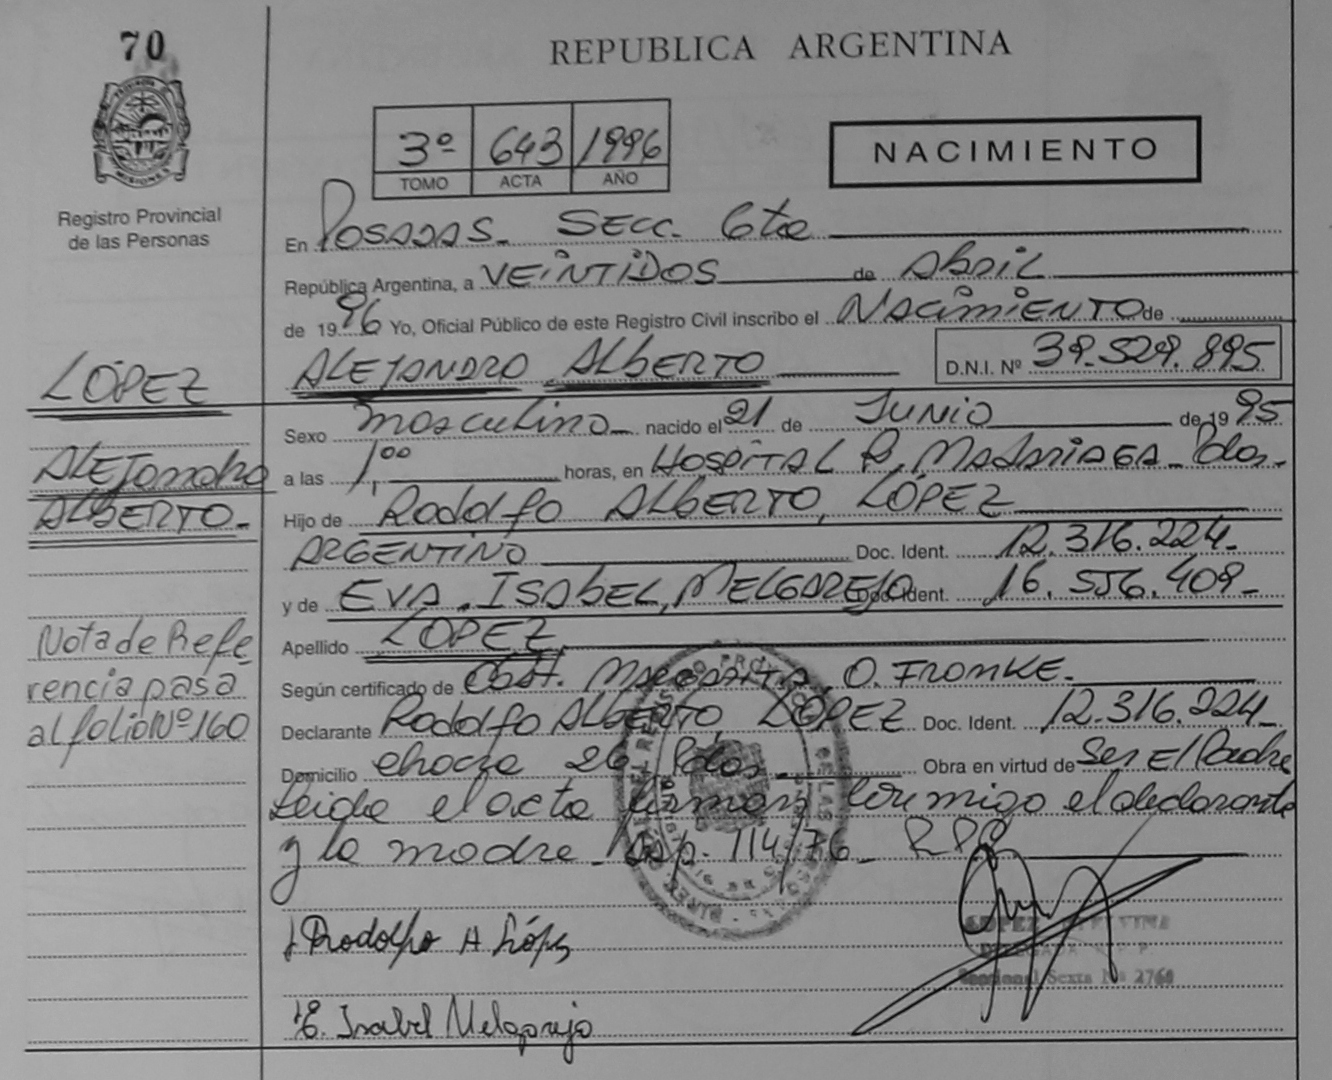 70
REPUBLICA ARGENTINA
PROVINCIA DE MISIONES
3º 643 1996
TOMO ACTA AÑO
NACIMIENTO
Registro Provincial
de las Personas
En POSADAS. SECC. 6ta
República Argentina, a VEINTIDOS de Abril
de 1996 Yo, Oficial Público de este Registro Civil inscribo el NACIMIENTO de
LÓPEZ
ALEJANDRO ALBERTO D.N.I. Nº 39.529.895
Sexo masculino nacido el 21 de JUNIO de 1995
ALEJandro
ALBERTO.
a las 1,00 horas, en HOSPITAL R. MADARIAGA - Pdas.
Hijo de Rodolfo ALBERTO, LÓPEZ
ARGENTINO Doc. Ident. 12.316.224.
y de EVA ISABEL, MELGAREJO Doc. Ident. 16.556.409
Apellido LÓPEZ
Nota de Refe
rencia pasa
al folio Nº 160
Según certificado de Obst. MARGARITA, O. FROMKE.
Declarante Rodolfo ALBERTO LÓPEZ Doc. Ident. 12.316.224
Domicilio chacra 26 Pdas Obra en virtud de Ser El Padre
Leida el acta firman conmigo el declarante
y la madre - Disp. 114/76 - RPP
Rodolfo A López
E. Isabel Melgarejo
LOPEZ
DELEGADA R. P. P.
Seccional Sexta Nº 2760